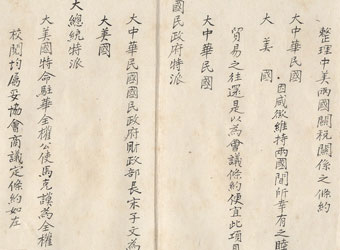 整理中美兩國關税關係之條約
大中華民國
大美國
因咸欲維持兩國間所幸有之睦
貿易之往還是以為會議條約便宜此項目
大中華民國
國民政府特派
大中華民國國民政府財政部長宋子文為
大美國
大總統特派
大美國特命駐華全權公使馬克謨為全權
校閱均屬妥協會商議定條約如左